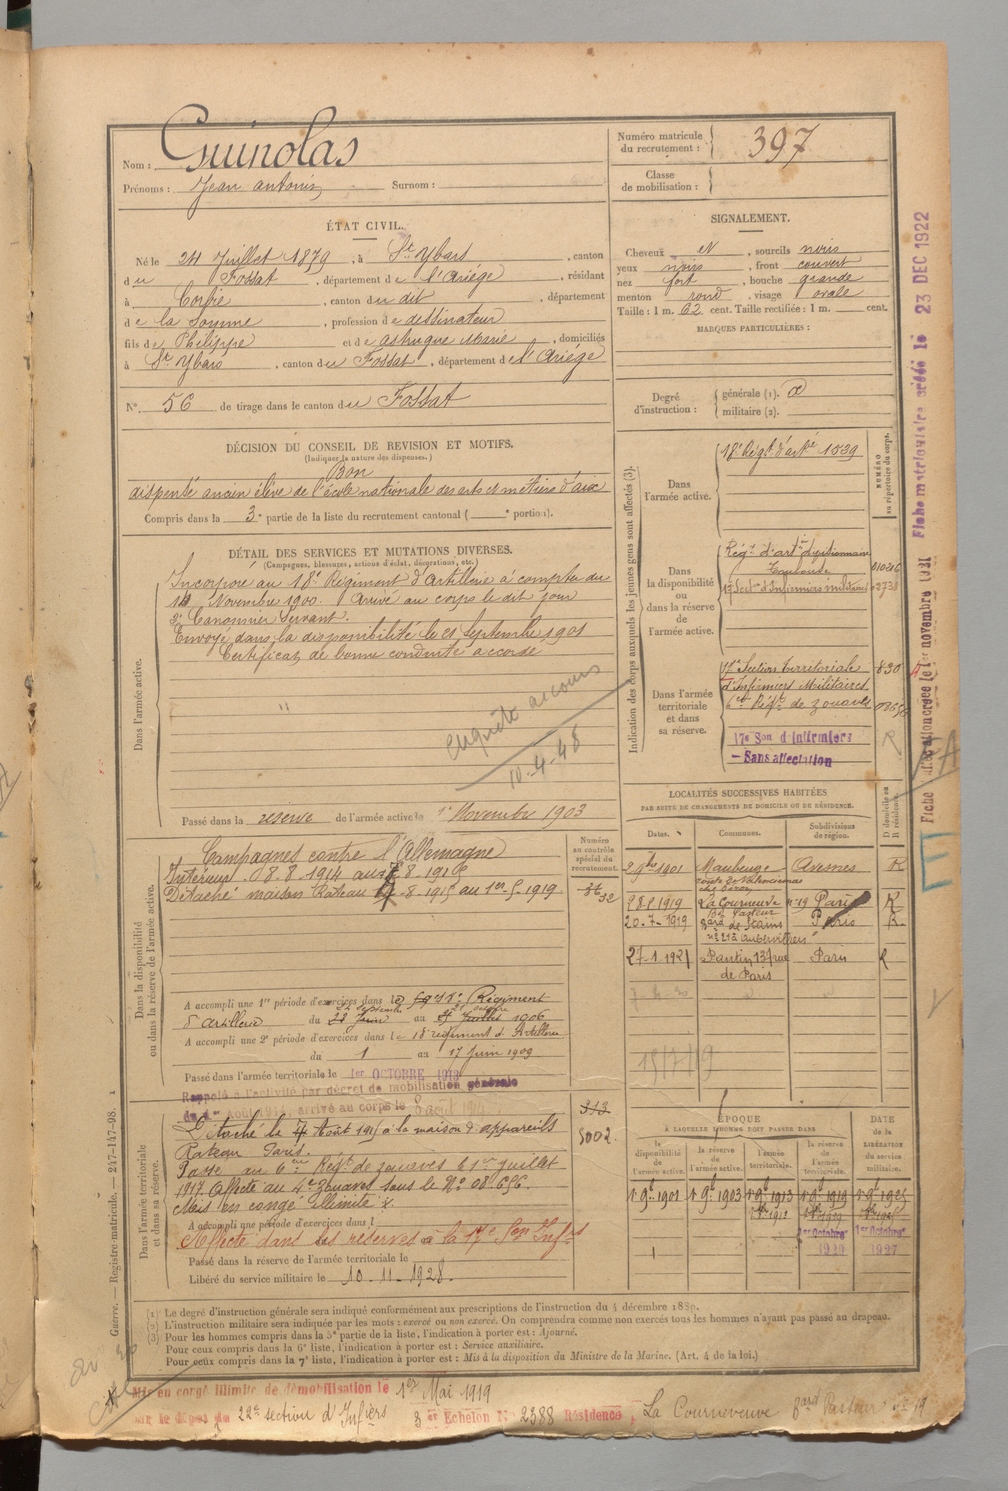 Nom : Guinolas
Prénoms : Jean Antonin Surnom :
Numéro matricule du recrutement : 397
Classe de mobilisation :
ÉTAT CIVIL.
Né le 24 Juillet 1879, à St Ybars, canton
du Fossat, département de l'Ariège, résidant
à Corbie, canton du dit, département
de la Somme, profession de dessinateur
fils de Philippe et de Astrugue Marie, domiciliés
à St Ybars, canton du Fossat, département de l'Ariège
N° 56 de tirage dans le canton du Fossat
SIGNALEMENT.
Cheveux N, sourcils noirs
yeux noirs, front couvert
nez fort, bouche grande
menton rond, visage ovale
Taille : 1 m. 62 cent. Taille rectifiée : 1 m. cent.
MARQUES PARTICULIÈRES :
Degré d'instruction : générale (1).
militaire (2).
DÉCISION DU CONSEIL DE REVISION ET MOTIFS.
(Indiquer la nature des dispenses.)
Bon
dispensé ancien élève de l'école nationale des arts et métiers d'aix
Compris dans la 3e partie de la liste du recrutement cantonal ( e portion).
DÉTAIL DES SERVICES ET MUTATIONS DIVERSES.
(Campagnes, blessures, actions d'éclat, décorations, etc.)
Dans l'armée active.
Incorporé au 18e Régiment d'Artillerie à compter du
14 Novembre 1900. Arrivé au corps le dit jour
2e Canonnier Servant.
Envoyé dans la disponibilité le 21 Septembre 1901
Certificat de bonne conduite accordé
enquête en cours
10-4-48
Passé dans la réserve de l'armée active le 1er Novembre 1903
Indication des corps auxquels les jeunes gens sont affectés (3).
NUMÉRO au répertoire du corps.
Dans l'armée active.
18e Régt d'artie 1539
Dans la disponibilité ou dans la réserve de l'armée active.
Régt d'artie divisionnaire
Toulouse
17e Sect. d'Infirmiers militaires 2738
Dans l'armée territoriale et dans sa réserve.
17e Section territoriale 830
d'Infirmiers Militaires
6e Régt de zouaves
17e Son d'Infirmiers
– Sans affectation
LOCALITÉS SUCCESSIVES HABITÉES
PAR SUITE DE CHANGEMENTS DE DOMICILE OU DE RÉSIDENCE.
Dates. Communes. Subdivisions de région. D domicile ou R résidence.
2 9bre 1901 Maubeuge Avesnes R
route de Valenciennes
La Courneuve n° 19 Paris R
Bd Pasteur
20-7-1919 de Stains Paris R
Aubervilliers
27-1-1921 Pantin, 137 rue Paris R
de Paris
Dans la disponibilité ou dans la réserve de l'armée active.
Numéro au contrôle spécial du recrutement.
Campagnes contre l'Allemagne
Intérieur 8.8.1914 au 8.1915
Détaché maison Rateau 8-1915 au 1er-5-1919
A accompli une 1re période d'exercices dans le 18e Régiment
d'Artillerie du 22 Juin au Juillet 1906
A accompli une 2e période d'exercices dans le 18e régiment d'Artillerie
du 1 au 17 Juin 1909
Passé dans l'armée territoriale le 1er OCTOBRE 1913
Rappelé à l'activité par décret de mobilisation générale
du 1er Août 1914, arrivé au corps le 8 août 1914
Dans l'armée territoriale et dans sa réserve.
313
5002
Détaché le 4 Août 1915 à la maison d'appareils
Rateau Paris.
Passé au 6e Régt de zouaves le 1er juillet
1917. Affecté au 4e zouaves sous le N° 08656.
Mis en congé illimité X.
A accompli une période d'exercices dans l
Affecté dans les réserves à la 17e Son Infrs
Passé dans la réserve de l'armée territoriale le
Libéré du service militaire le 10-11-1928.
ÉPOQUE
À LAQUELLE L'HOMME DOIT PASSER DANS
la disponibilité de l'armée active. la réserve de l'armée active. l'armée territoriale. la réserve de l'armée territoriale.
DATE de la LIBÉRATION du service militaire.
1er 9bre 1901 1er 9bre 1903 1er 9bre 1913 1er 9bre 1919 1er 9bre 1925
1er Octobre 1920
1er Octobre 1927
(1) Le degré d'instruction générale sera indiqué conformément aux prescriptions de l'instruction du 4 décembre 1889.
(2) L'instruction militaire sera indiquée par les mots : exercé ou non exercé. On comprendra comme non exercés tous les hommes n'ayant pas passé au drapeau.
(3) Pour les hommes compris dans la 5e partie de la liste, l'indication à porter est : Ajourné.
Pour ceux compris dans la 6e liste, l'indication à porter est : Service auxiliaire.
Pour ceux compris dans la 7e liste, l'indication à porter est : Mis à la disposition du Ministre de la Marine. (Art. 4 de la loi.)
Mis en congé illimité de démobilisation le 1er Mai 1919
par le dépôt du 22e section d'Infiers 3er Echelon N° 2388 Résidence, La Courneuve Bard Pasteur n° 19
Guerre. — Registre-matricule. — 247-147-98.
Fiche matriculaire créée le 23 DEC 1922
Fiche créée le 1er novembre 1931